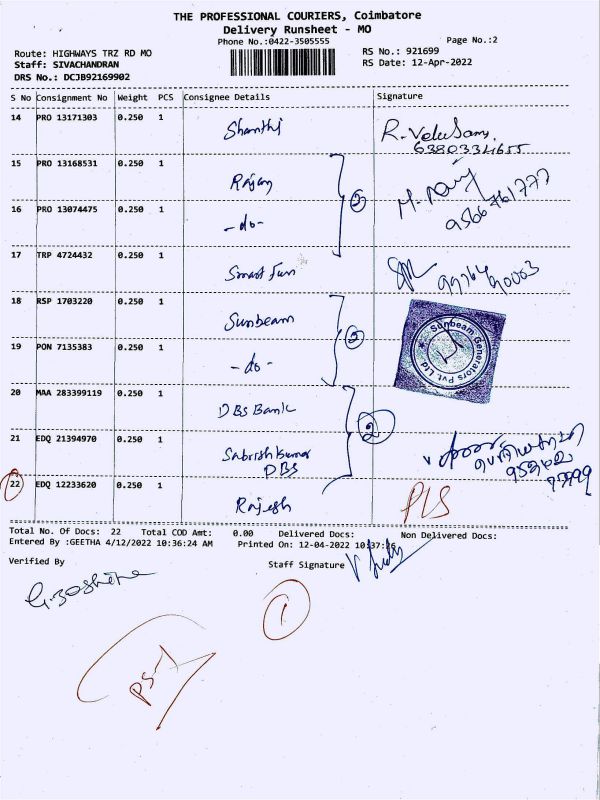 THE PROFESSIONAL COURIERS, Coimbatore
Delivery Runsheet - MO
Phone No.:0422-3505555
Page No.:2
Route: HIGHWAYS TRZ RD MO
RS No.: 921699
Staff: SIVACHANDRAN
RS Date: 12-Apr-2022
DRS No.: DCJB92169902
S No Consignment No Weight PCS Consignee Details Signature
14 PRO 13171303 0.250 1 Shanthi R. Velu Samy
6380334655
15 PRO 13168531 0.250 1 Rajan
② 9566761777
16 PRO 13074475 0.250 1 -do-
17 TRP 4724432 0.250 1 Smart Fun 99764 90003
18 RSP 1703220 0.250 1 Sunbeam Sunbeam Generators Pvt. Ltd
②
19 PON 7135383 0.250 1 -do-
20 MAA 283399119 0.250 1 DBS Bank
②
21 EDQ 21394970 0.250 1 Sabrish Kumar
DBS
22 EDQ 12233620 0.250 1 Rajesh PLS
Total No. Of Docs: 22 Total COD Amt: 0.00 Delivered Docs: Non Delivered Docs:
Entered By :GEETHA 4/12/2022 10:36:24 AM Printed On: 12-04-2022 10:37:26
Verified By Staff Signature
①